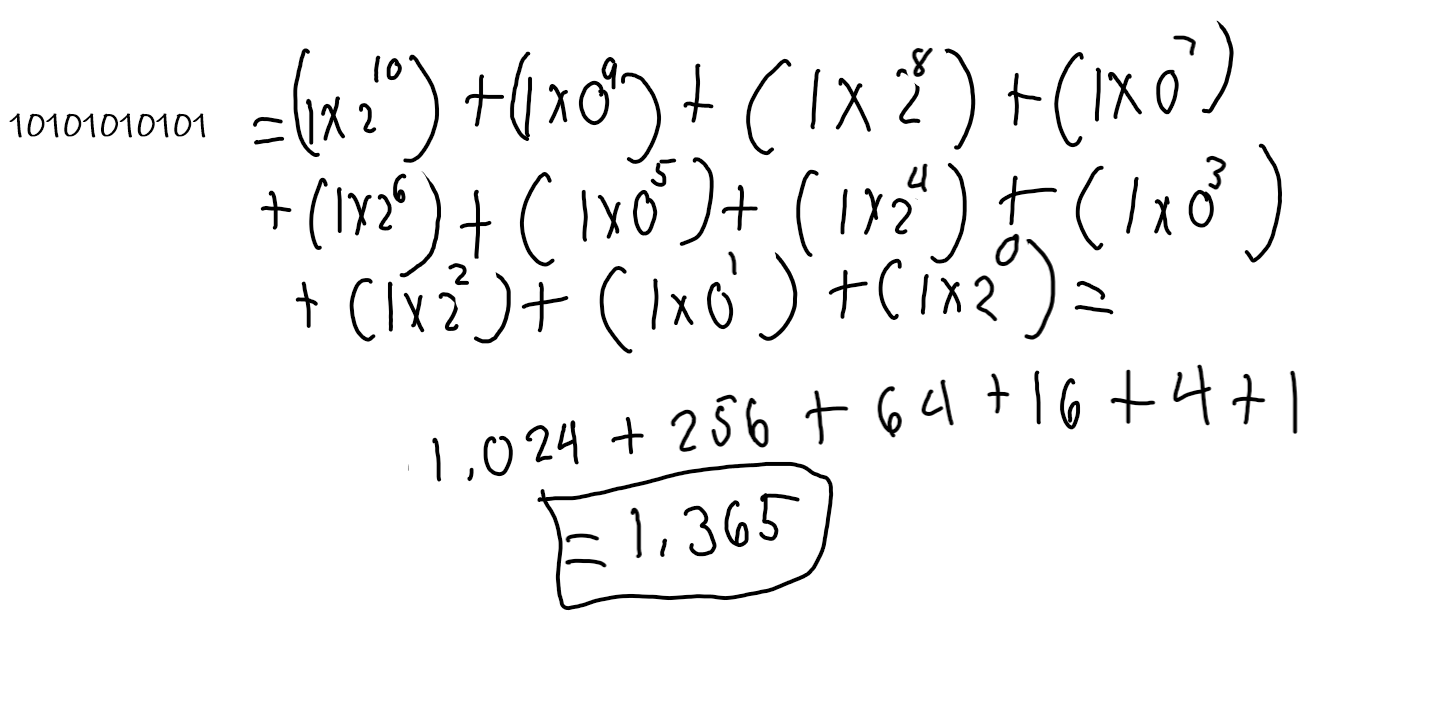 10101010101 = (1x2^10) + (1x0^9) + (1x2^8) + (1x0^7)
+ (1x2^6) + (1x0^5) + (1x2^4) + (1x0^3)
+ (1x2^2) + (1x0^1) + (1x2^0) =
1,024 + 256 + 64 + 16 + 4 + 1
= 1,365